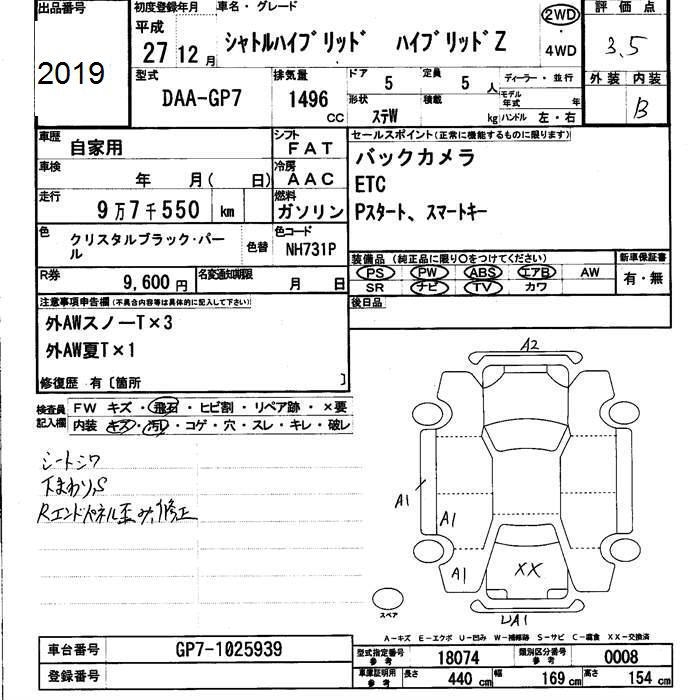 出品番号
2019
初度登録年月
平成
27 12 月
車名・グレード
シャトルハイブリッド ハイブリッドZ
2WD
・
4WD
評価点
3.5
外装 内装
B
型式
DAA-GP7
排気量
1496
CC
ドア
5
定員
5 人
形状
ステW
積載
kg
ディーラー・並行
モデル年式 年
ハンドル 左・右
車歴
自家用
シフト
FAT
車検
年 月( 日)
冷房
AAC
走行
9万7千550 km
燃料
ガソリン
色
クリスタルブラック・パール
色替
色コード
NH731P
R券
9,600 円
名変通知期限
月 日
セールスポイント(正常に機能するものに限ります)
バックカメラ
ETC
Pスタート、スマートキー
装備品(純正品に限り〇をつけてください)
PS PW ABS エアB AW
SR ナビ TV カワ
新車保証書
有・無
後日品
注意事項申告欄(不具合内容等は具体的に記入して下さい)
外AWスノーT×3
外AW夏T×1
修復歴 有〔箇所 〕
検査員
記入欄
FW キズ・飛石・ヒビ割・リペア跡・×要
内装 キズ・汚レ・コゲ・穴・スレ・キレ・破レ
シートシワ
下まわりS
Rエンドパネル歪み,修正
A2
A1
A1
A1
XX
UA1
スペア
A-キズ E-エクボ U-凹み W-補修跡 S-サビ C-腐食 XX-交換済
車台番号
GP7-1025939
登録番号
型式指定番号
参考
18074
類別区分番号
参考
0008
車庫証明用
参考
長さ
440 cm
幅
169 cm
高さ
154 cm